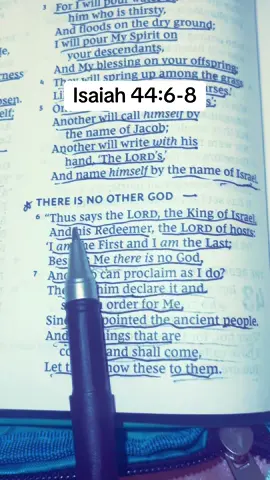 3 For I will pour
him who is thirsty,
And floods on the dry ground;
I will pour My Spirit on
your descendants,
And My blessing on your offspring;
4 They will spring up among the grass
Isaiah 44:6-8
5
Another will call himself by
the name of Jacob;
Another will write with his
hand, 'The LORD's,'
And name himself by the name of Israel.
THERE IS NO OTHER GOD
6 "Thus says the LORD, the King of Israel,
And his Redeemer, the LORD of hosts:
'I am the First and I am the Last;
Me there is no God,
7 can proclaim as I do?
him declare it and
order for Me,
the ancient people.
And that are
and shall come,
Let to them.